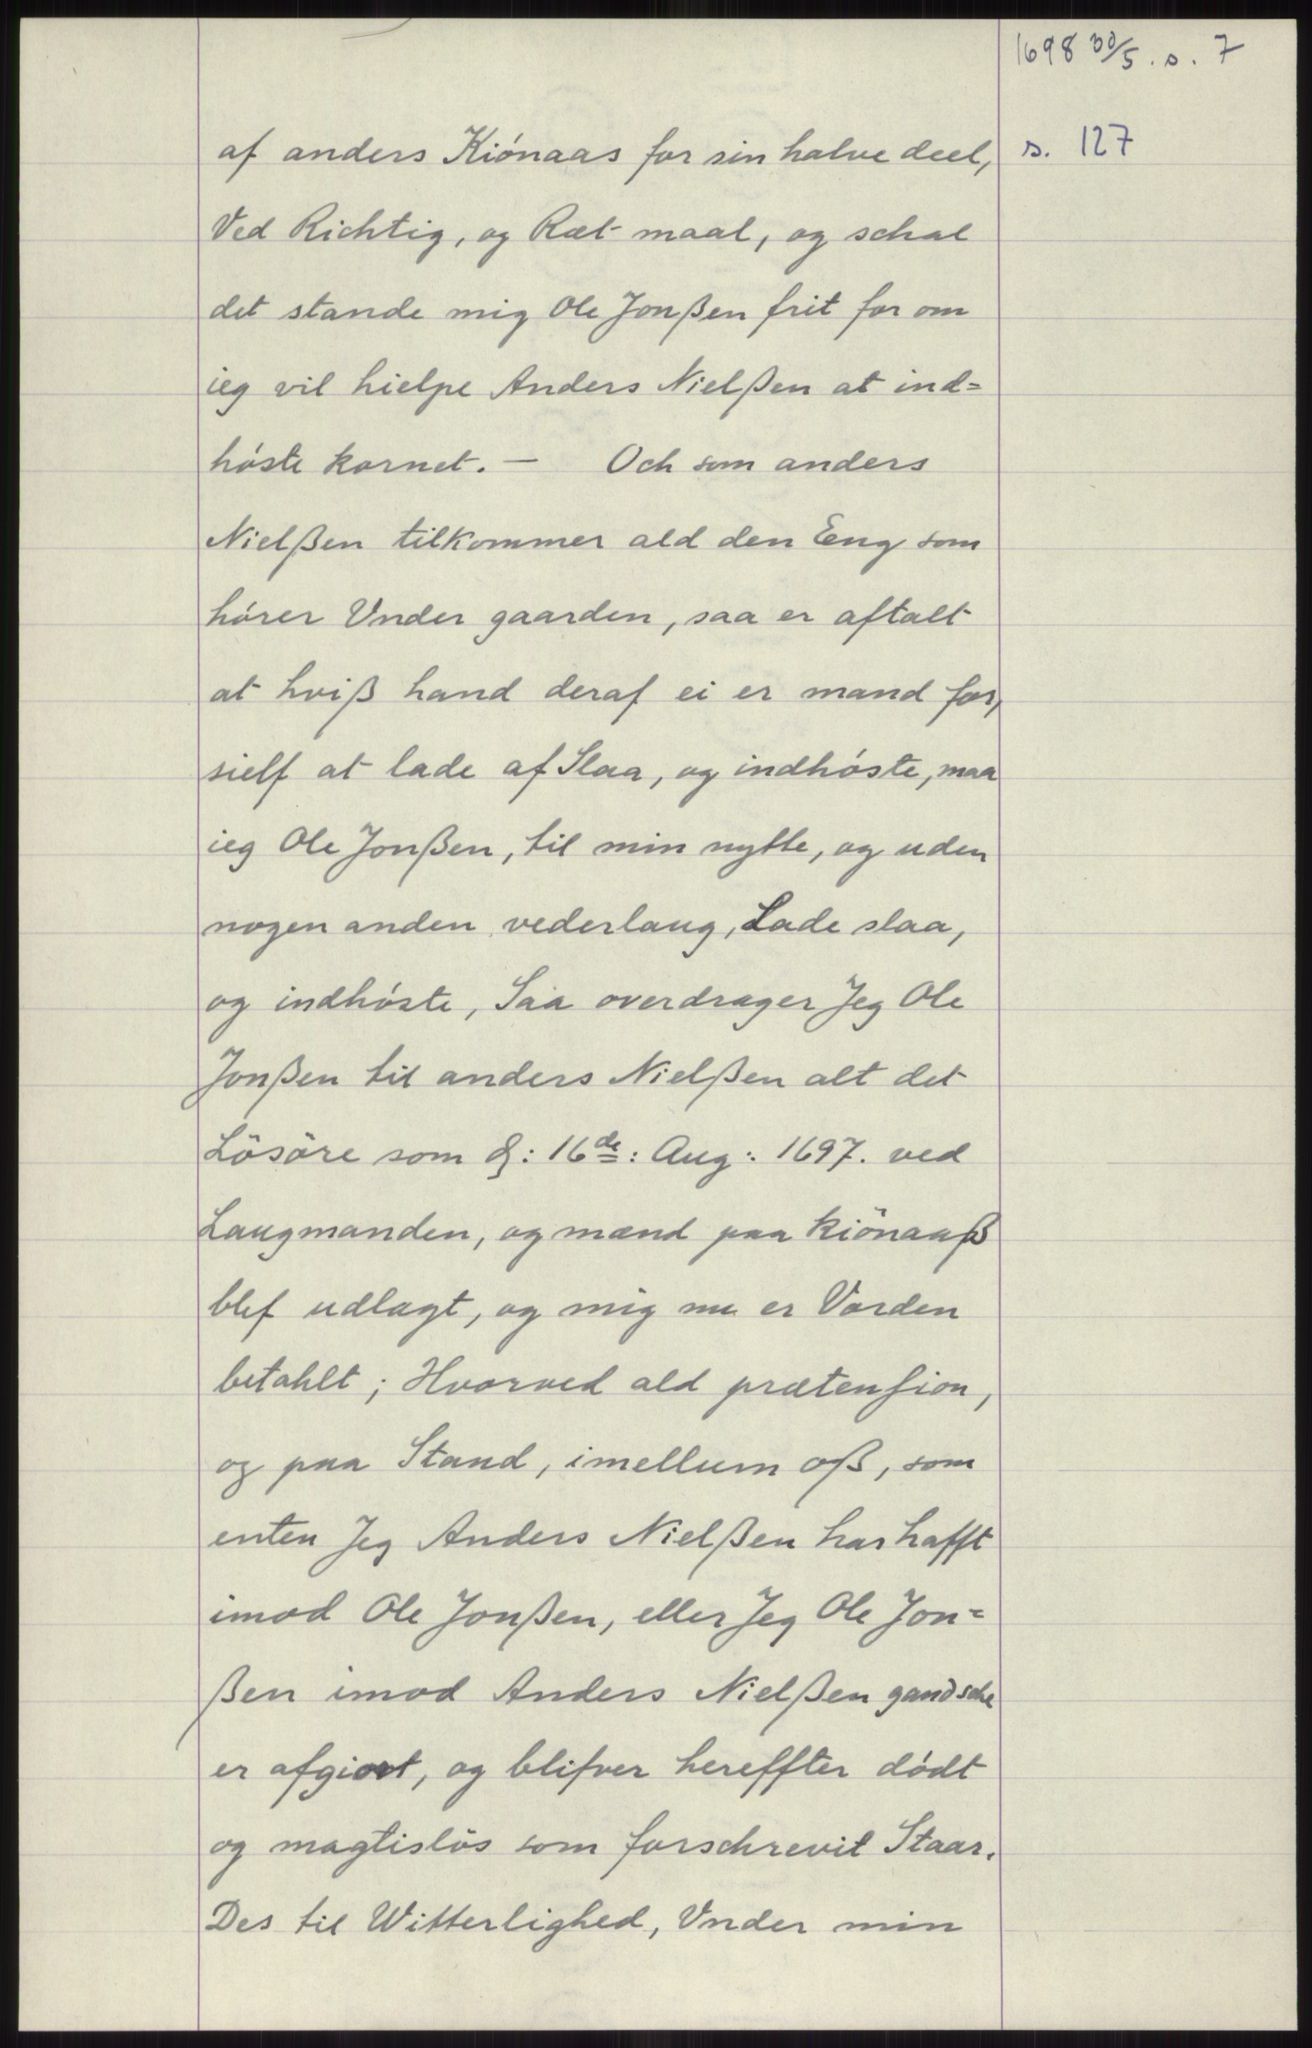 1698 30/5 . s. 7
s. 127
af anders Kiónaas for sin halve deel,
Ved Richtig, og Ræt maal, og schal
det stande mig Ole Jonßen frit for om
ieg vil hielpe Anders Nielßen at ind=
hóste kornet. — Och som anders
Nielßen tilkommer ald den Eng som
hórer Vnder gaarden, saa er aftalt
at hviß hand deraf ei er mand for,
sielf at lade af Slaa, og indhóste, maa
ieg Ole Jonßen, til min nytte, og uden
nogen anden vederlaug, Lade slaa,
og indhóste, Saa overdrager Jeg Ole
Jonßen til anders Nielßen alt det
Lösöre som d: 16de: Aug: 1697. ved
Laugmanden, og mænd paa kiönaaß
blef udlagt, og mig nu er Vorden
betahlt; Hvorved ald prætension,
og paa Stand, imellum oß, som
enten Jeg Anders Nielßen har hafft
imod Ole Jonßen, eller Jeg Ole Jon=
ßen imod Anders Nielßen gandsche
er afgiort, og blifver hereffter dódt
og magtislös som forschrevit Staar.
Des til Witterlighed, Vnder min